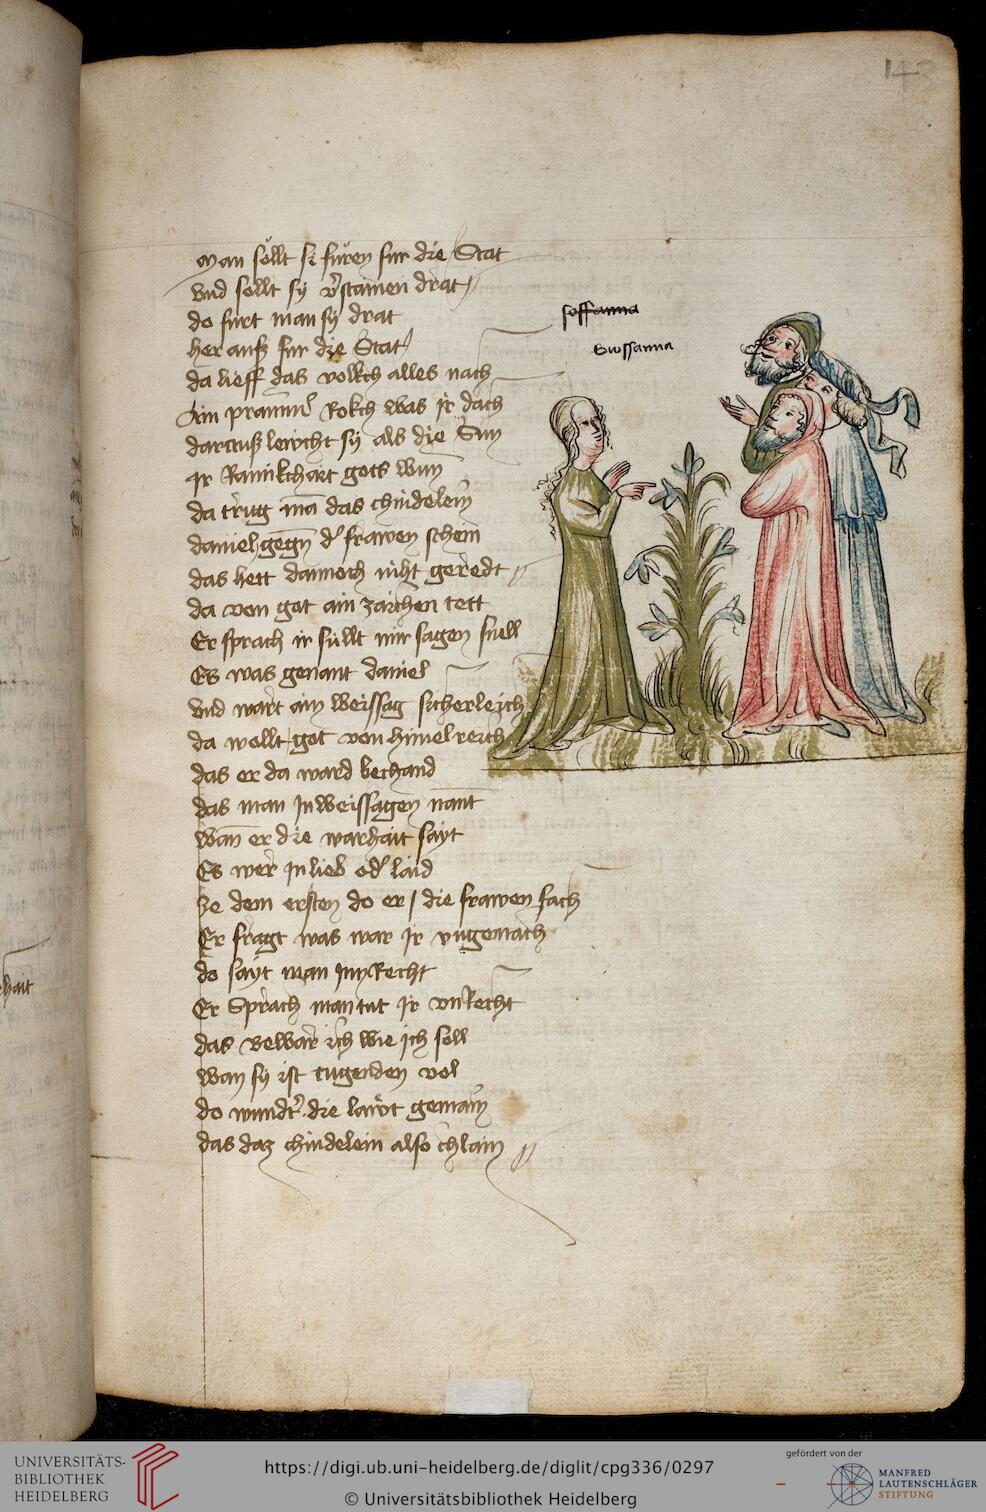 143
Man sollt si füren fur die Stat
Vnd sollt sy v̄stainen drat
do fürt man sy drat
her ausz fur die Stat
da lieff das volkch alles nach
Ain Rokch was ir dach
daraus leẅcht sy als die Sun
Ir gots wun
da trug mā das chindelein
daniel gegn d' frawen schein
das hett dannoch niht geredt
da von got ain zaichen tett
Er sprach ir süllt mir sagen snell
Es was genant daniel
Vnd wart ain weissag sicherleich
da wollt got von himelreich
das er da ward bechand
das man In weissagen nant
wan er die warhait sayt
Es wer In lieb od' laid
Ze dem ersten do er die frawen sach
Er fragt was war Ir vngemach
do sayt man Imz Recht
Er Sprach man tut Ir vnRecht
das Bewar ich wie ich soll
wan sy ist tugenden vol
do wundt' die läwt gemain
das daz chindelein also chlain
sossanna
Swssanna
hait
UNIVERSITÄTS-
BIBLIOTHEK
HEIDELBERG
https://digi.ub.uni-heidelberg.de/diglit/cpg336/0297
© Universitätsbibliothek Heidelberg
gefördert von der
MANFRED
LAUTENSCHLÄGER
STIFTUNG